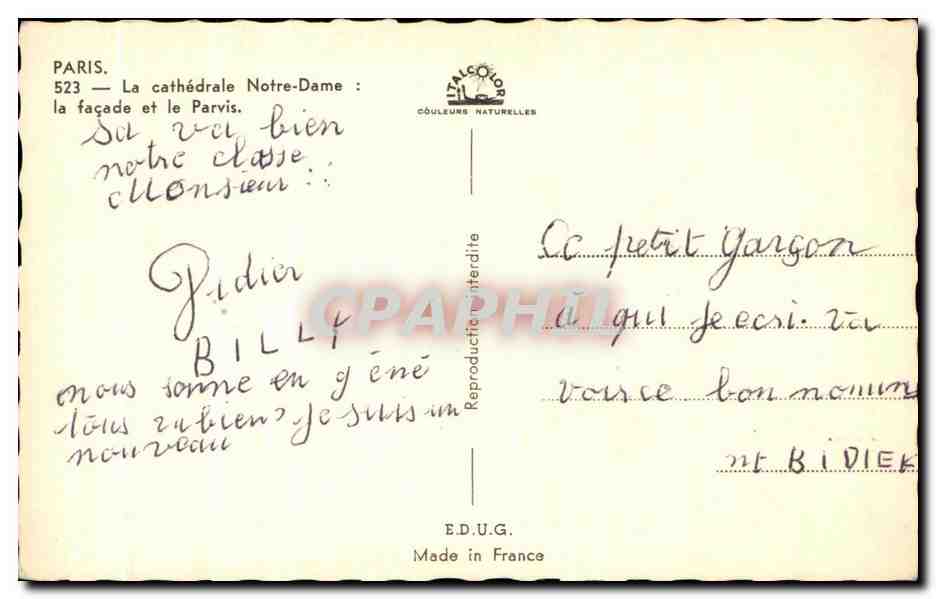 PARIS.
523 — La cathédrale Notre-Dame :
la façade et le Parvis.
ITALCOLOR
COULEURS NATURELLES
sa va bien
notre classe
Monsieur ..
Didier
BILLY
nous somme en géné
tous va bien, je suis un
nouveau
Reproduction interdite
CPAPHIL
Ce petit garçon
à qui je ecri. va
voir ce bon
nt BIDIER
E.D.U.G.
Made in France